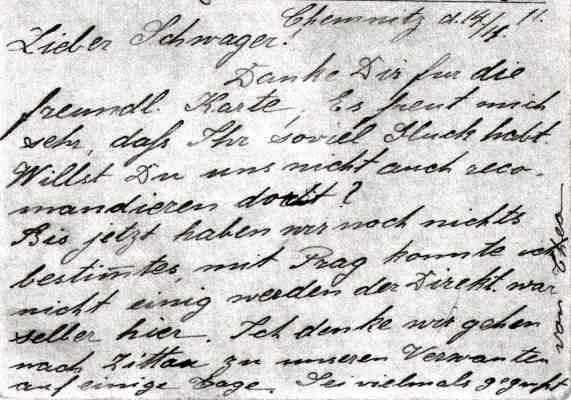 Chemnitz d. 14/11. 11.
Lieber Schwager!
Danke Dir für die
freundl. Karte, Es freut mich
sehr, daß Ihr soviel Glück habt.
Willst Du uns nicht auch reco-
mandieren dort?
Bis jetzt haben wir noch nichts
bestimtes, mit Prag konnte ich
nicht einig werden der Direkt. war
selber hier. Ich denke wir gehen
nach Zittau zu unseren Verwanten
auf einige Tage. Sei vielmals gegrüßt
von